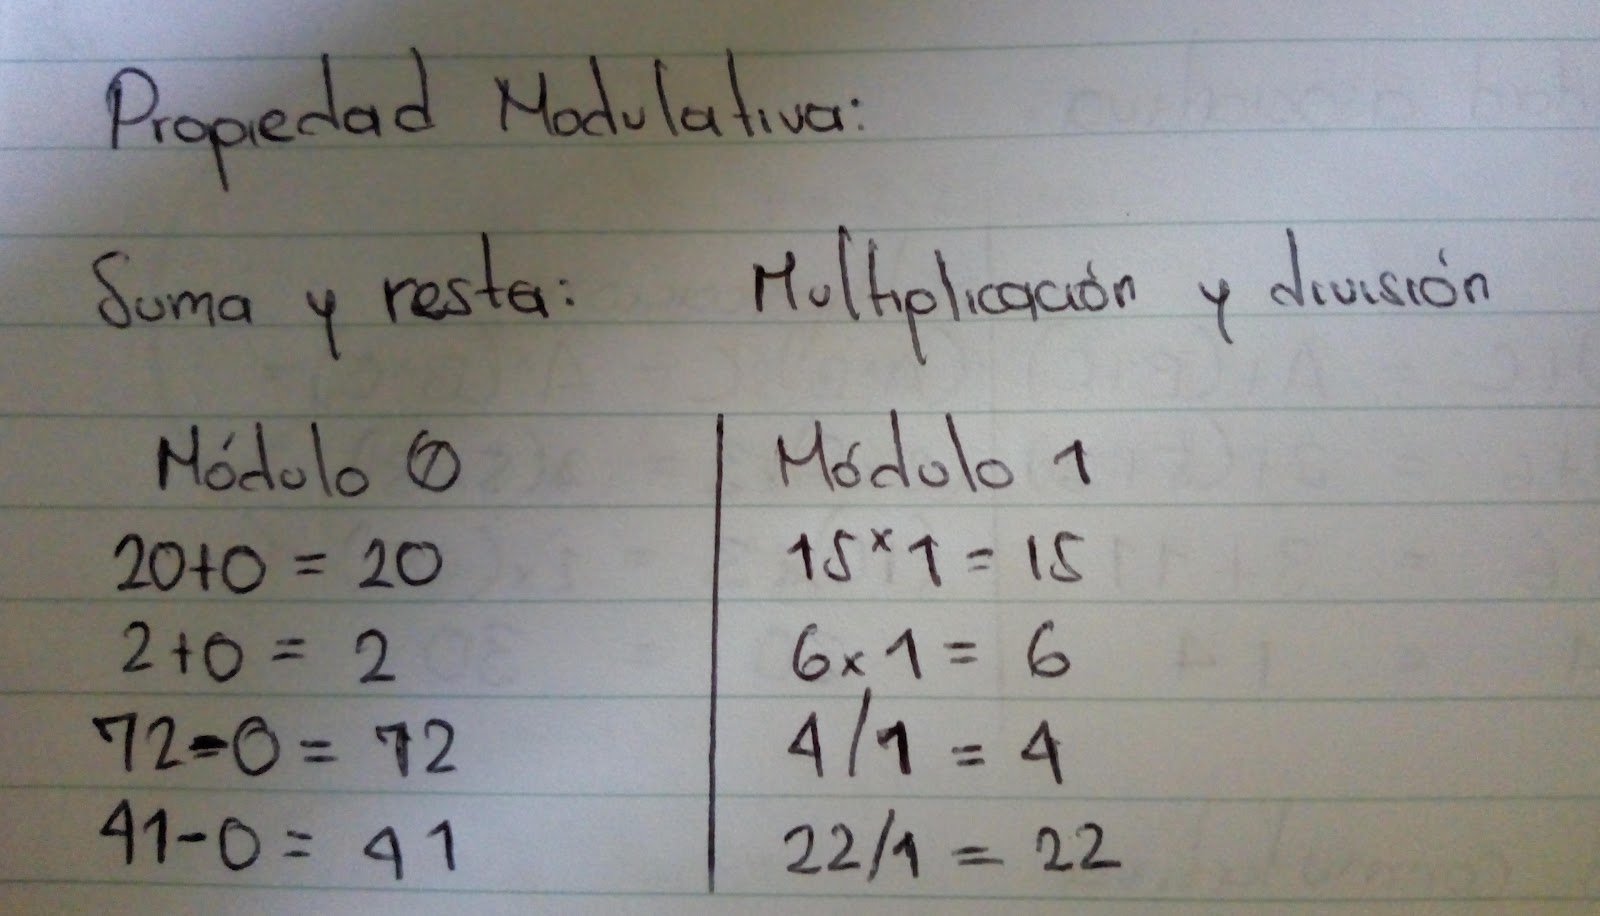 Propiedad Modulativa:
Suma y resta: Multiplicación y división
Módulo 0 Módulo 1
20+0 = 20 15x1 = 15
2+0 = 2 6x1 = 6
72-0 = 72 4/1 = 4
41-0 = 41 22/1 = 22